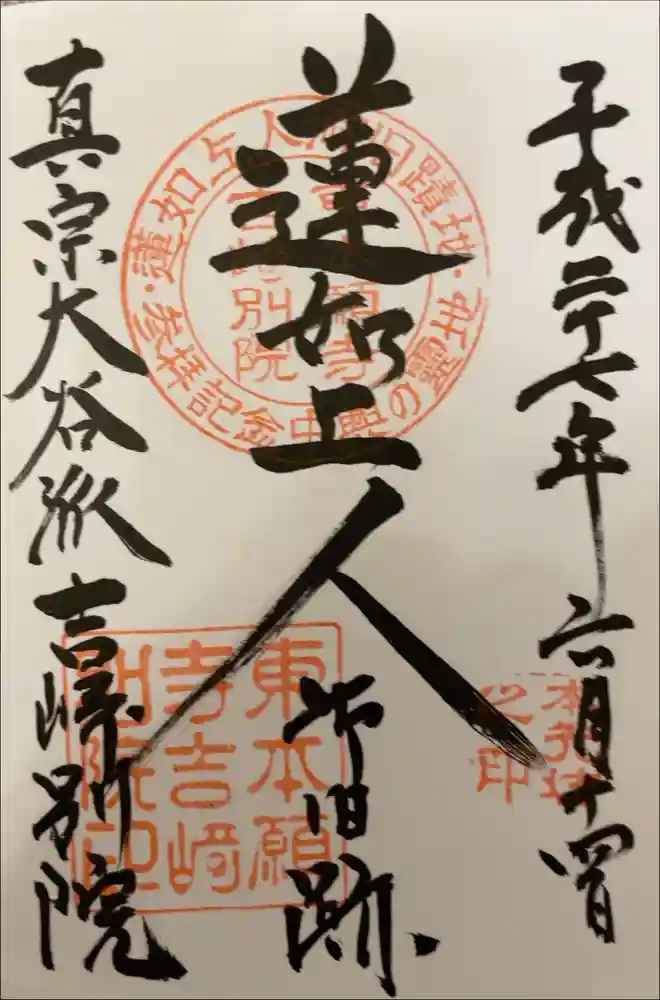 平成二十七年 六月十四日
蓮如上人
御旧跡
真宗大谷派 吉崎別院
蓮如上人御旧蹟地・中興の霊地・参拝記念
東本願寺
吉崎別院
東本願
寺吉崎
別院印
之印